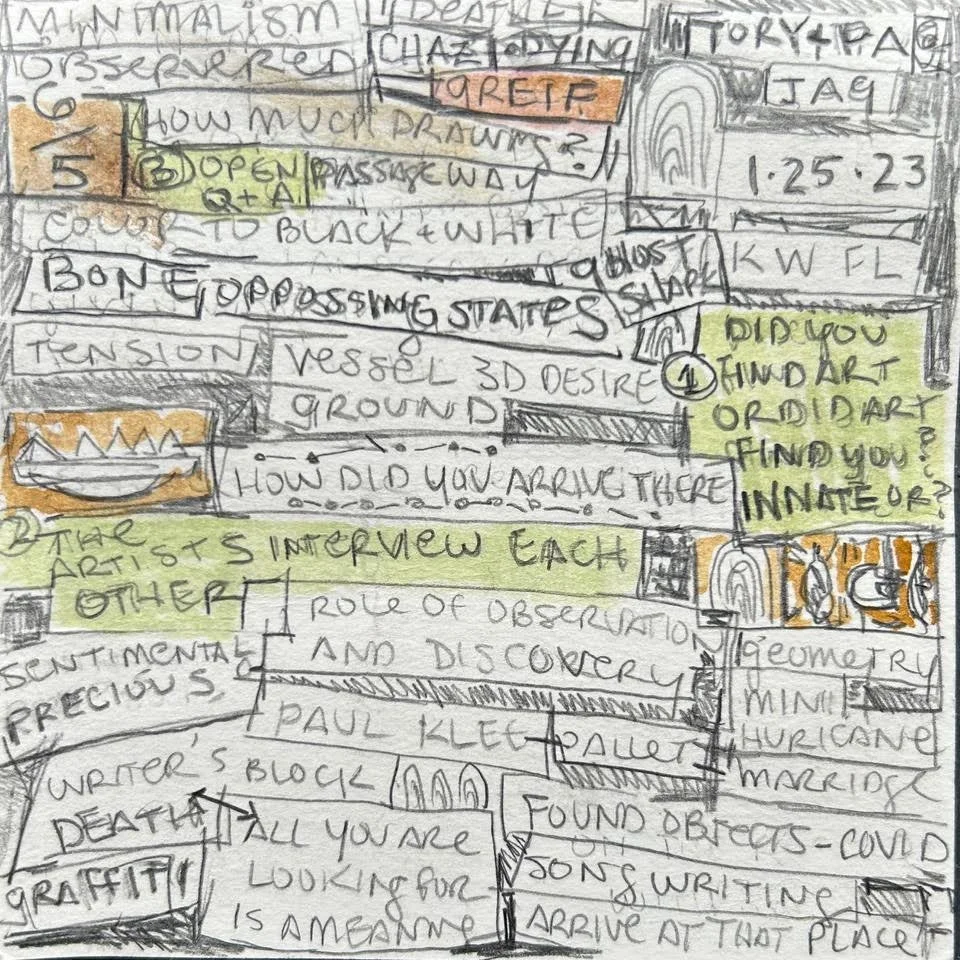 MINIMALISM
OBSERVERED
DEATH
CHAZ DYING
GREIF
TORY+
JAG
1.25.23
KW FL
6/5
HOW MUCH DRAWING?
③ OPEN Q+A
PASSAGEWAY
COLOR TO BLACK + WHITE
GHOST
SHAPE
BONE OPPOSSING STATES
TENSION
VESSEL 3D DESIRE
GROUND
① DID YOU
FIND ART
OR DID ART
FIND YOU?
INNATE OR?
HOW DID YOU ARRIVE THERE
② THE
ARTISTS INTERVIEW EACH
OTHER
ROLE OF OBSERVATION
AND DISCOVERY
SENTIMENTAL
PRECIOUS
GEOMETRY
MINI
HURICANE
MARRIDGE
PAUL KLEE
PALLET
WRITER'S BLOCK
DEATH
GRAFFITI
ALL YOU ARE
LOOKING FOR
IS A MEANING
FOUND OBJECTS - COVID
SONG WRITING
ARRIVE AT THAT PLACE